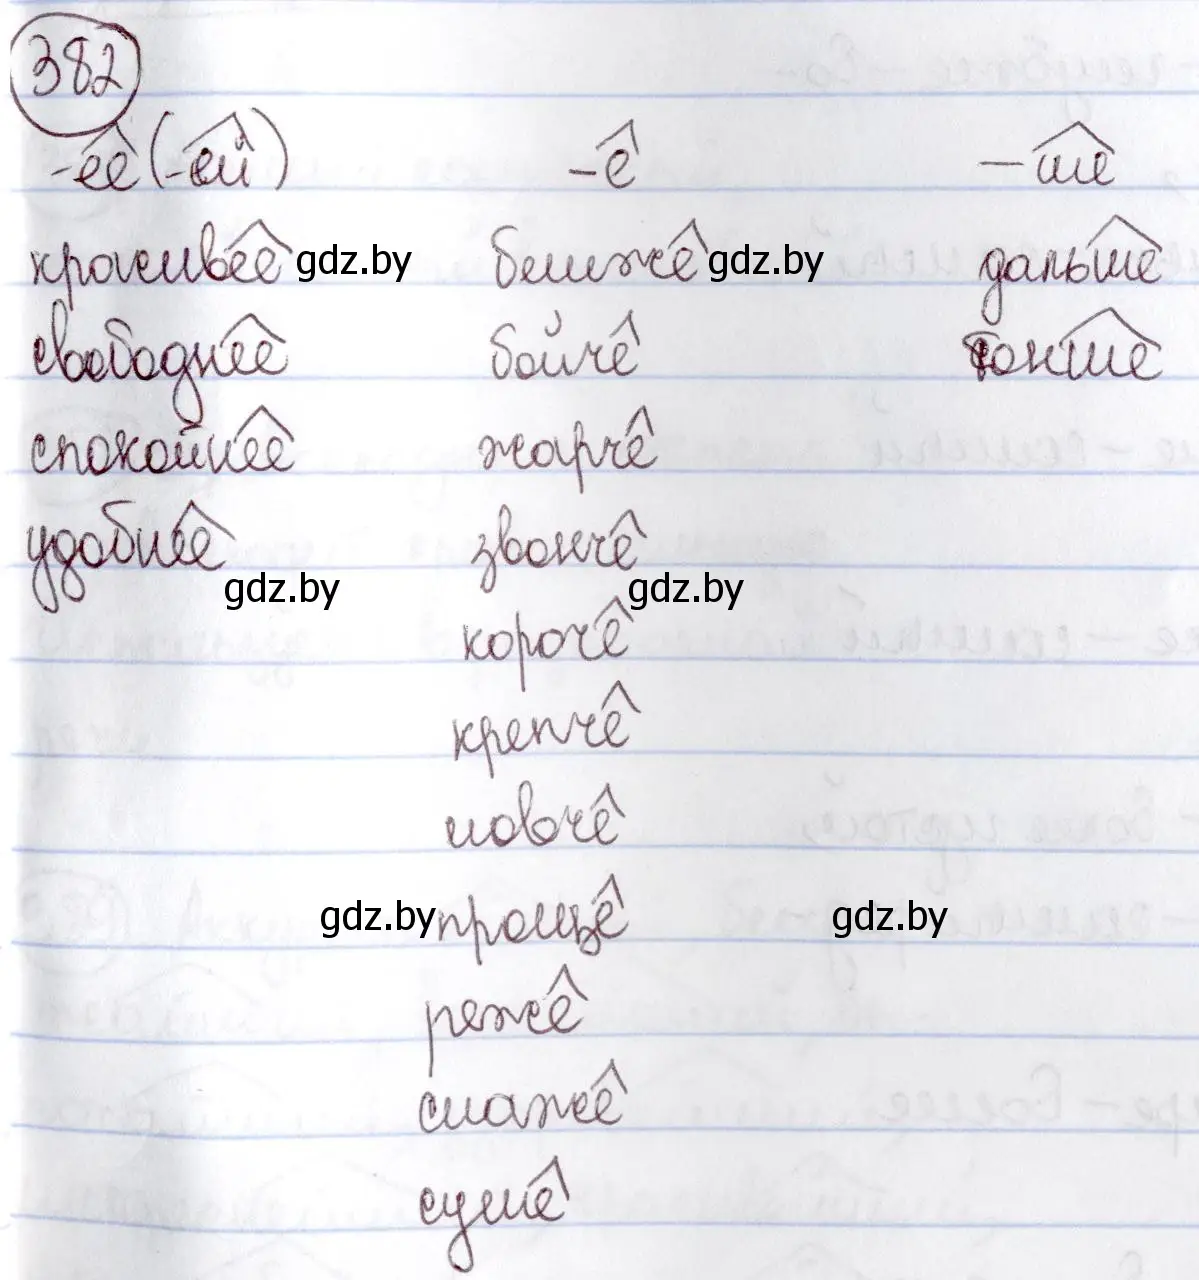 382
-ее (-ей) -е -ше
красивее gdz.by ближе gdz.by дальше
свободнее бойче тоньше
спокойнее жарче
удобнее звонче
gdz.by gdz.by
короче
крепче
ловче
gdz.by проще gdz.by
реже
слаже
суше